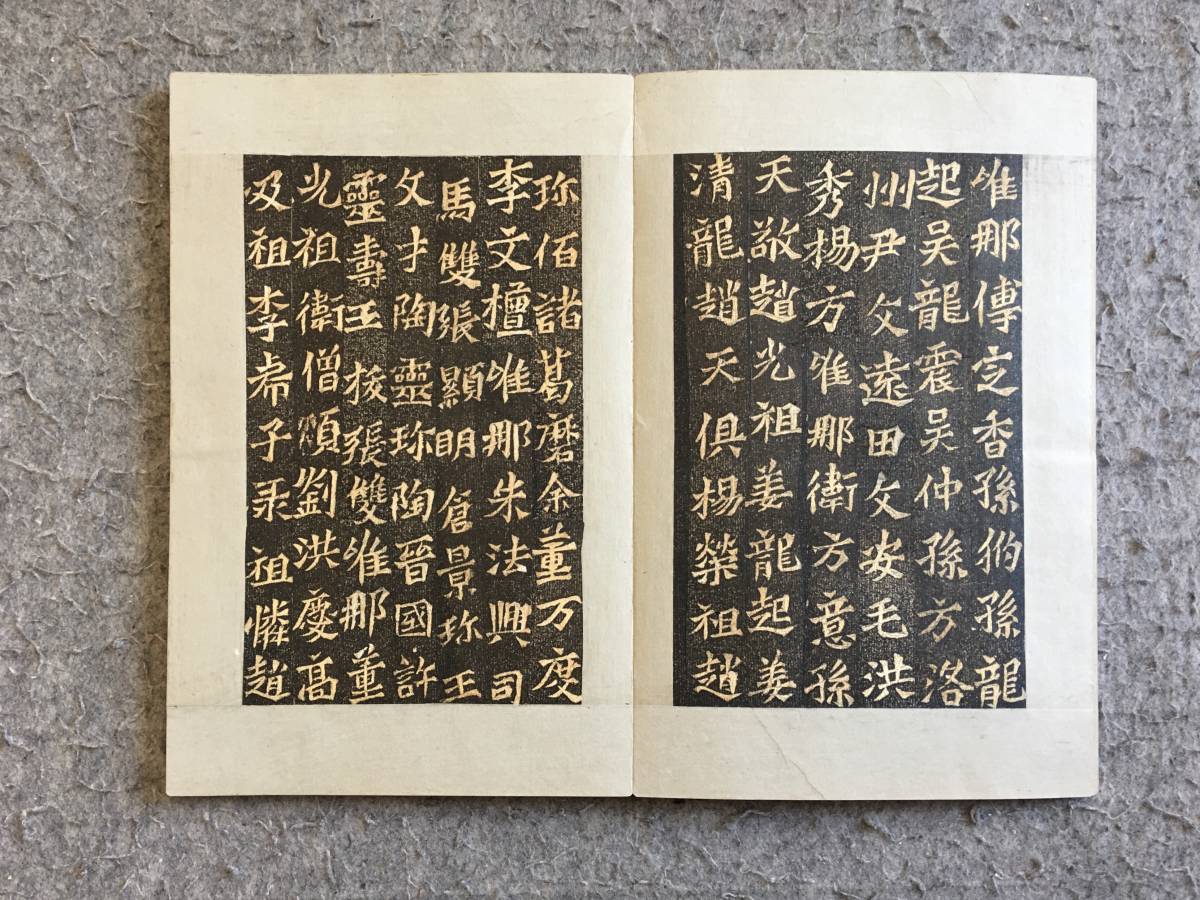 唯那傅定香孫伯孫龍
起吴龍震吴仲孫方洛
州尹文遠田文安毛洪
秀楊方唯那衛方意孫
天敬趙光祖姜龍起姜
清龍趙天俱楊榮祖趙
珎佰諸葛磨余董万度
李文檀唯那朱法興司
馬雙張顯明倉景珎王
文才陶靈珎陶晉國許
靈壽王拔張雙唯那董
光祖衛僧劉洪慶高
及祖李希子祖憐趙